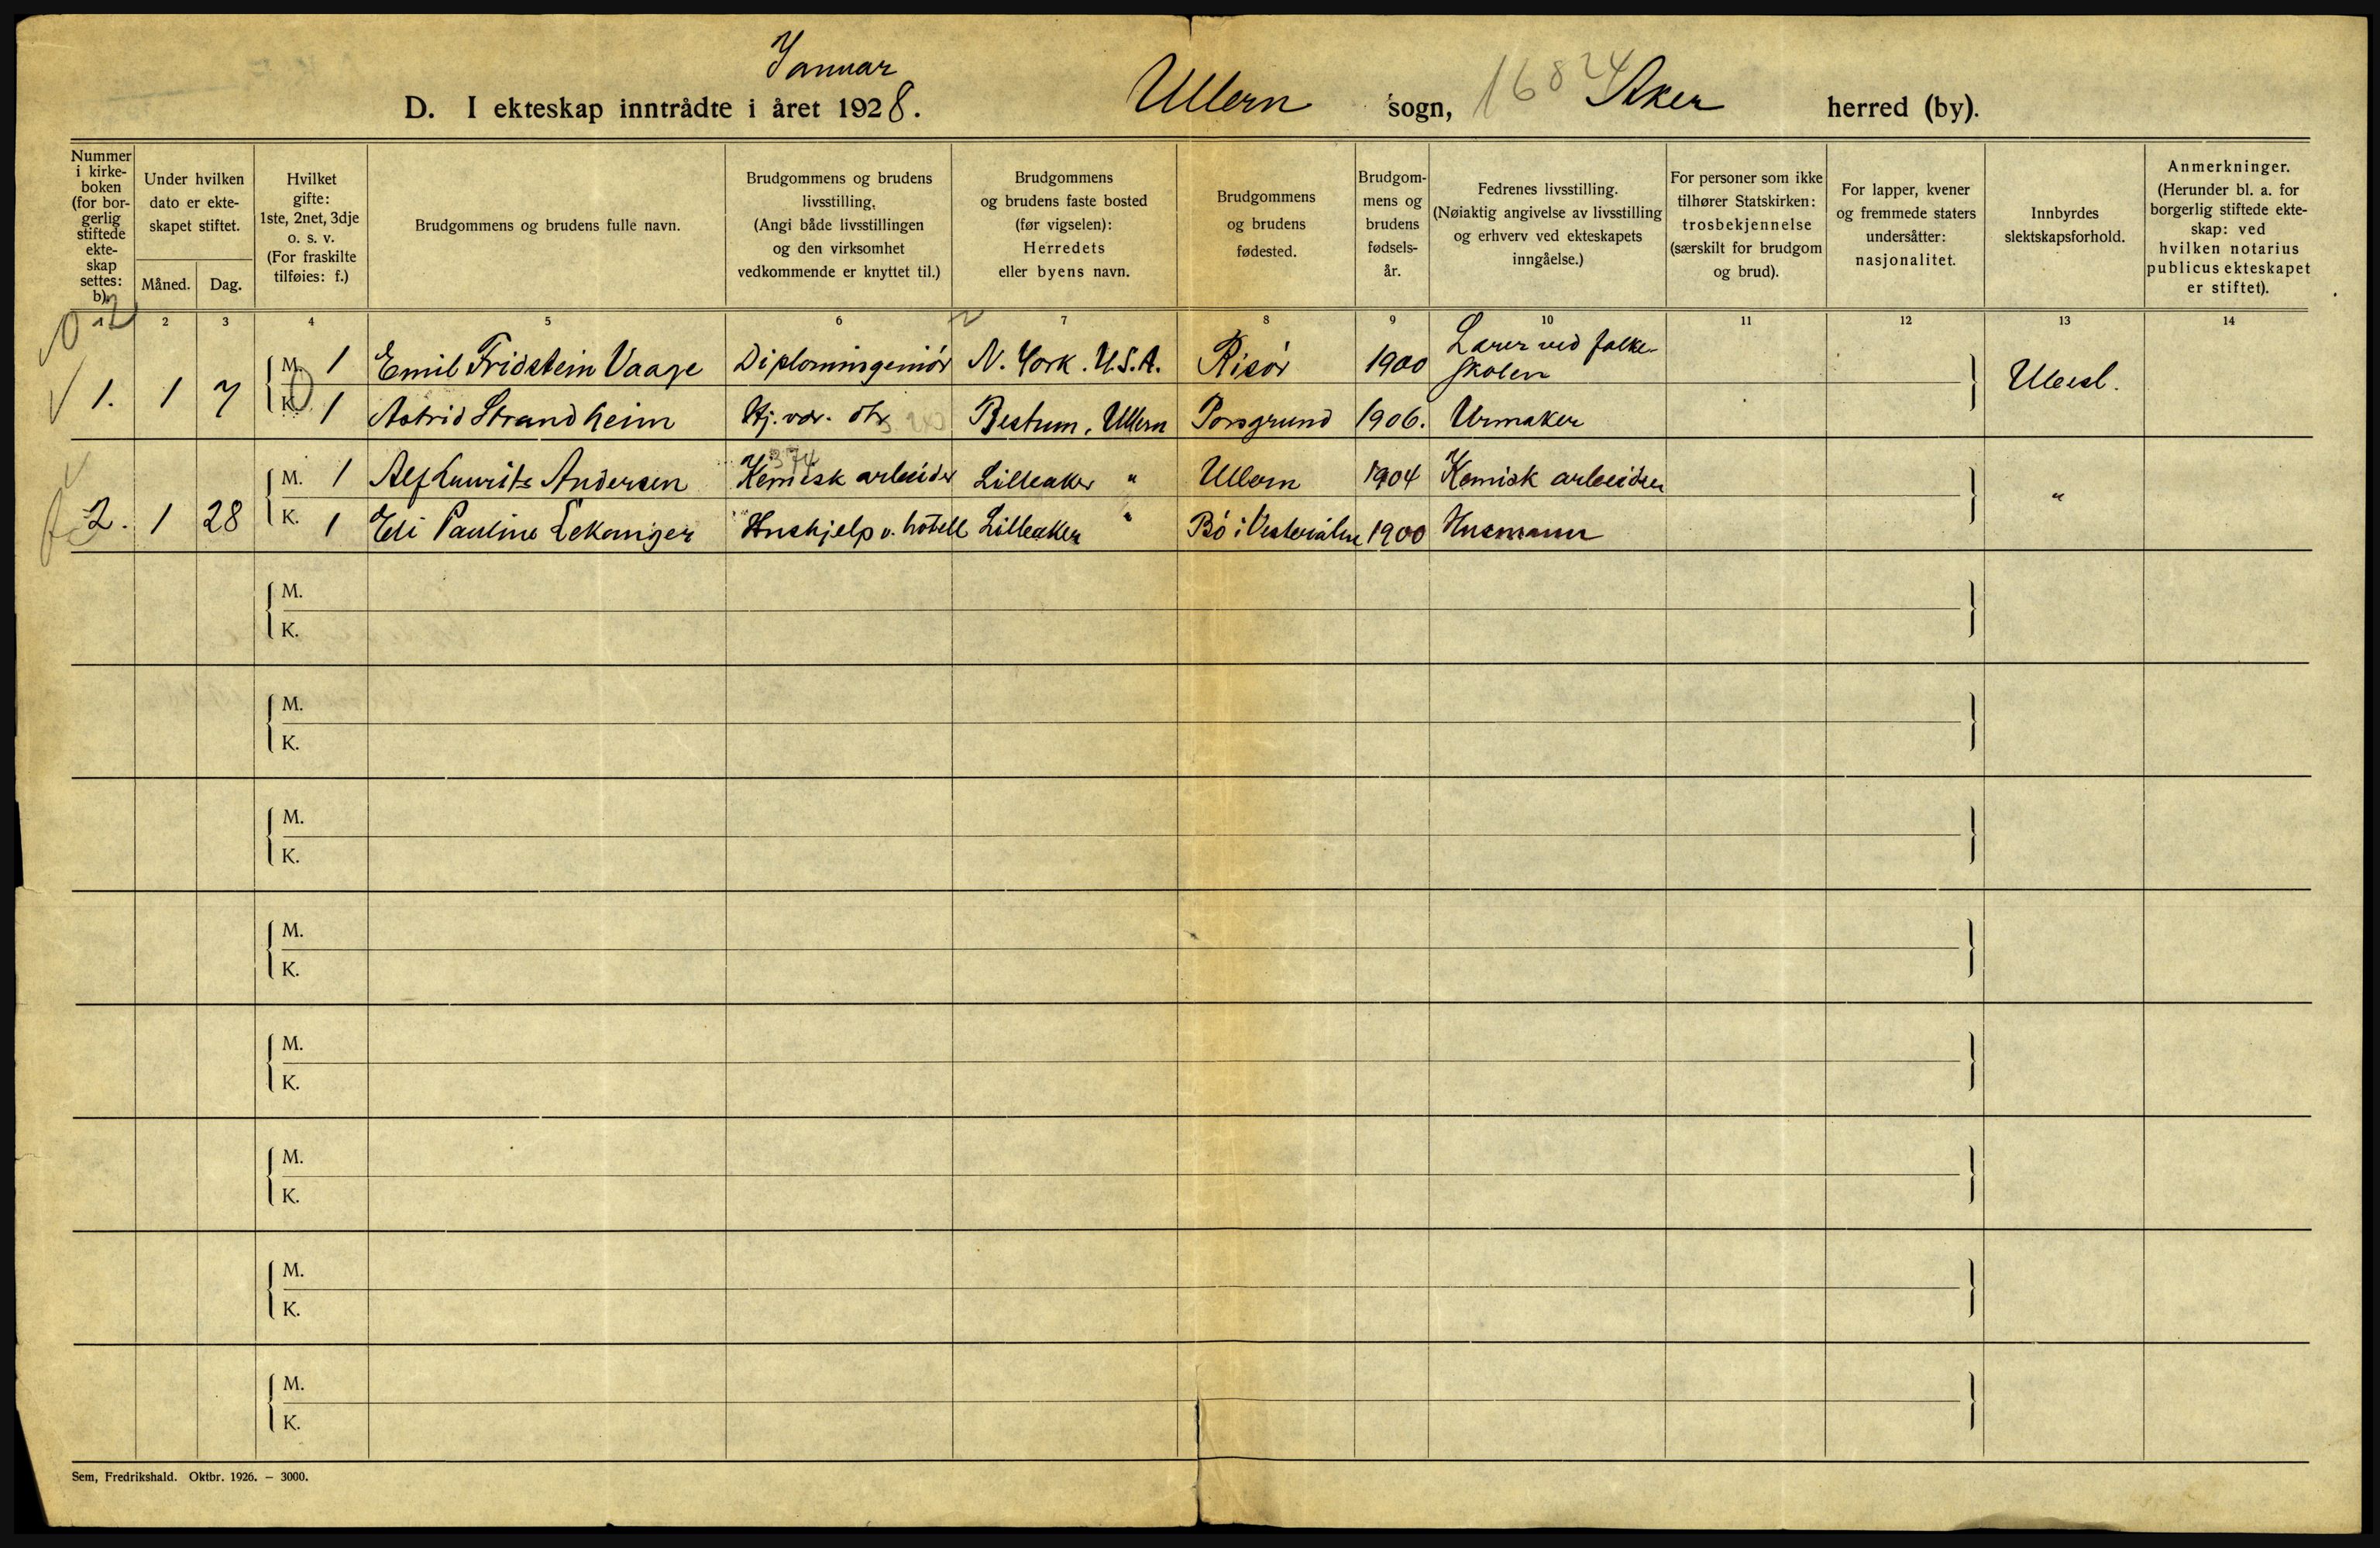 Januar
D. I ekteskap inntrådte i året 1928. Ullern sogn, 1684 Aker herred (by).
Nummer i kirke-boken (for bor-gerlig stiftede ekte-skap settes: b).
Under hvilken dato er ekte-skapet stiftet.
Måned. Dag.
Hvilket gifte: 1ste, 2net, 3dje o. s. v. (For fraskilte tilføies: f.)
Brudgommens og brudens fulle navn.
Brudgommens og brudens livsstilling. (Angi både livsstillingen og den virksomhet vedkommende er knyttet til.)
Brudgommens og brudens faste bosted (før vigselen): Herredets eller byens navn.
Brudgommens og brudens fødested.
Brudgom-mens og brudens fødsels-år.
Fedrenes livsstilling. (Nøiaktig angivelse av livsstilling og erhverv ved ekteskapets inngåelse.)
For personer som ikke tilhører Statskirken: trosbekjennelse (særskilt for brudgom og brud).
For lapper, kvener og fremmede staters undersåtter: nasjonalitet.
Innbyrdes slektskapsforhold.
Anmerkninger. (Herunder bl. a. for borgerlig stiftede ekte-skap: ved hvilken notarius publicus ekteskapet er stiftet).
1 2 3 4 5 6 7 8 9 10 11 12 13 14
M. 1 Emil Fridstein Vaage Diplomingeniör N. York. U.S.A. Risör 1900 Lærer ved folke-skolen
1. 1 7 Ubesl.
K. 1 Astrid Strandheim Hj. vær. Bestum, Ullern Porsgrund 1906. Urmaker
374
M. 1 Alf Laurits Andersen Kemisk arbeider Lilleaker " Ullern 1904 Kemisk arbeider
2. 1 28 "
K. 1 Eli Pauline Lekanger Hushjelp v. hotell Lilleaker " Bö i Vesterålen 1900 Husmann
M.
K.
M.
K.
M.
K.
M.
K.
M.
K.
M.
K.
M.
K.
M.
K.
Sem, Fredrikshald. Oktbr. 1926. – 3000.